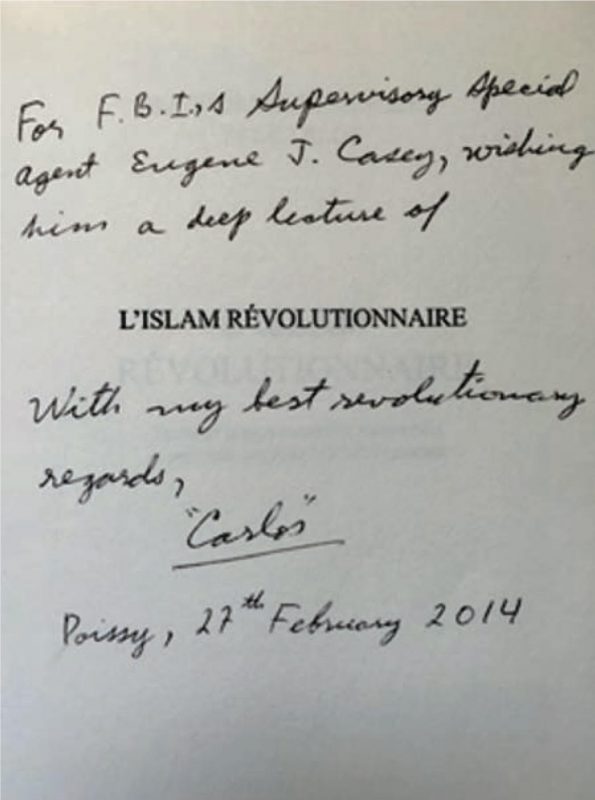 For F.B.I.,s Supervisory Special
Agent Eugene J. Casey, wishing
him a deep lecture of
L'ISLAM RÉVOLUTIONNAIRE
RÉVOLUTIONNAIRE
With my best revolutionary
regards,
"Carlos"
Poissy, 27th February 2014